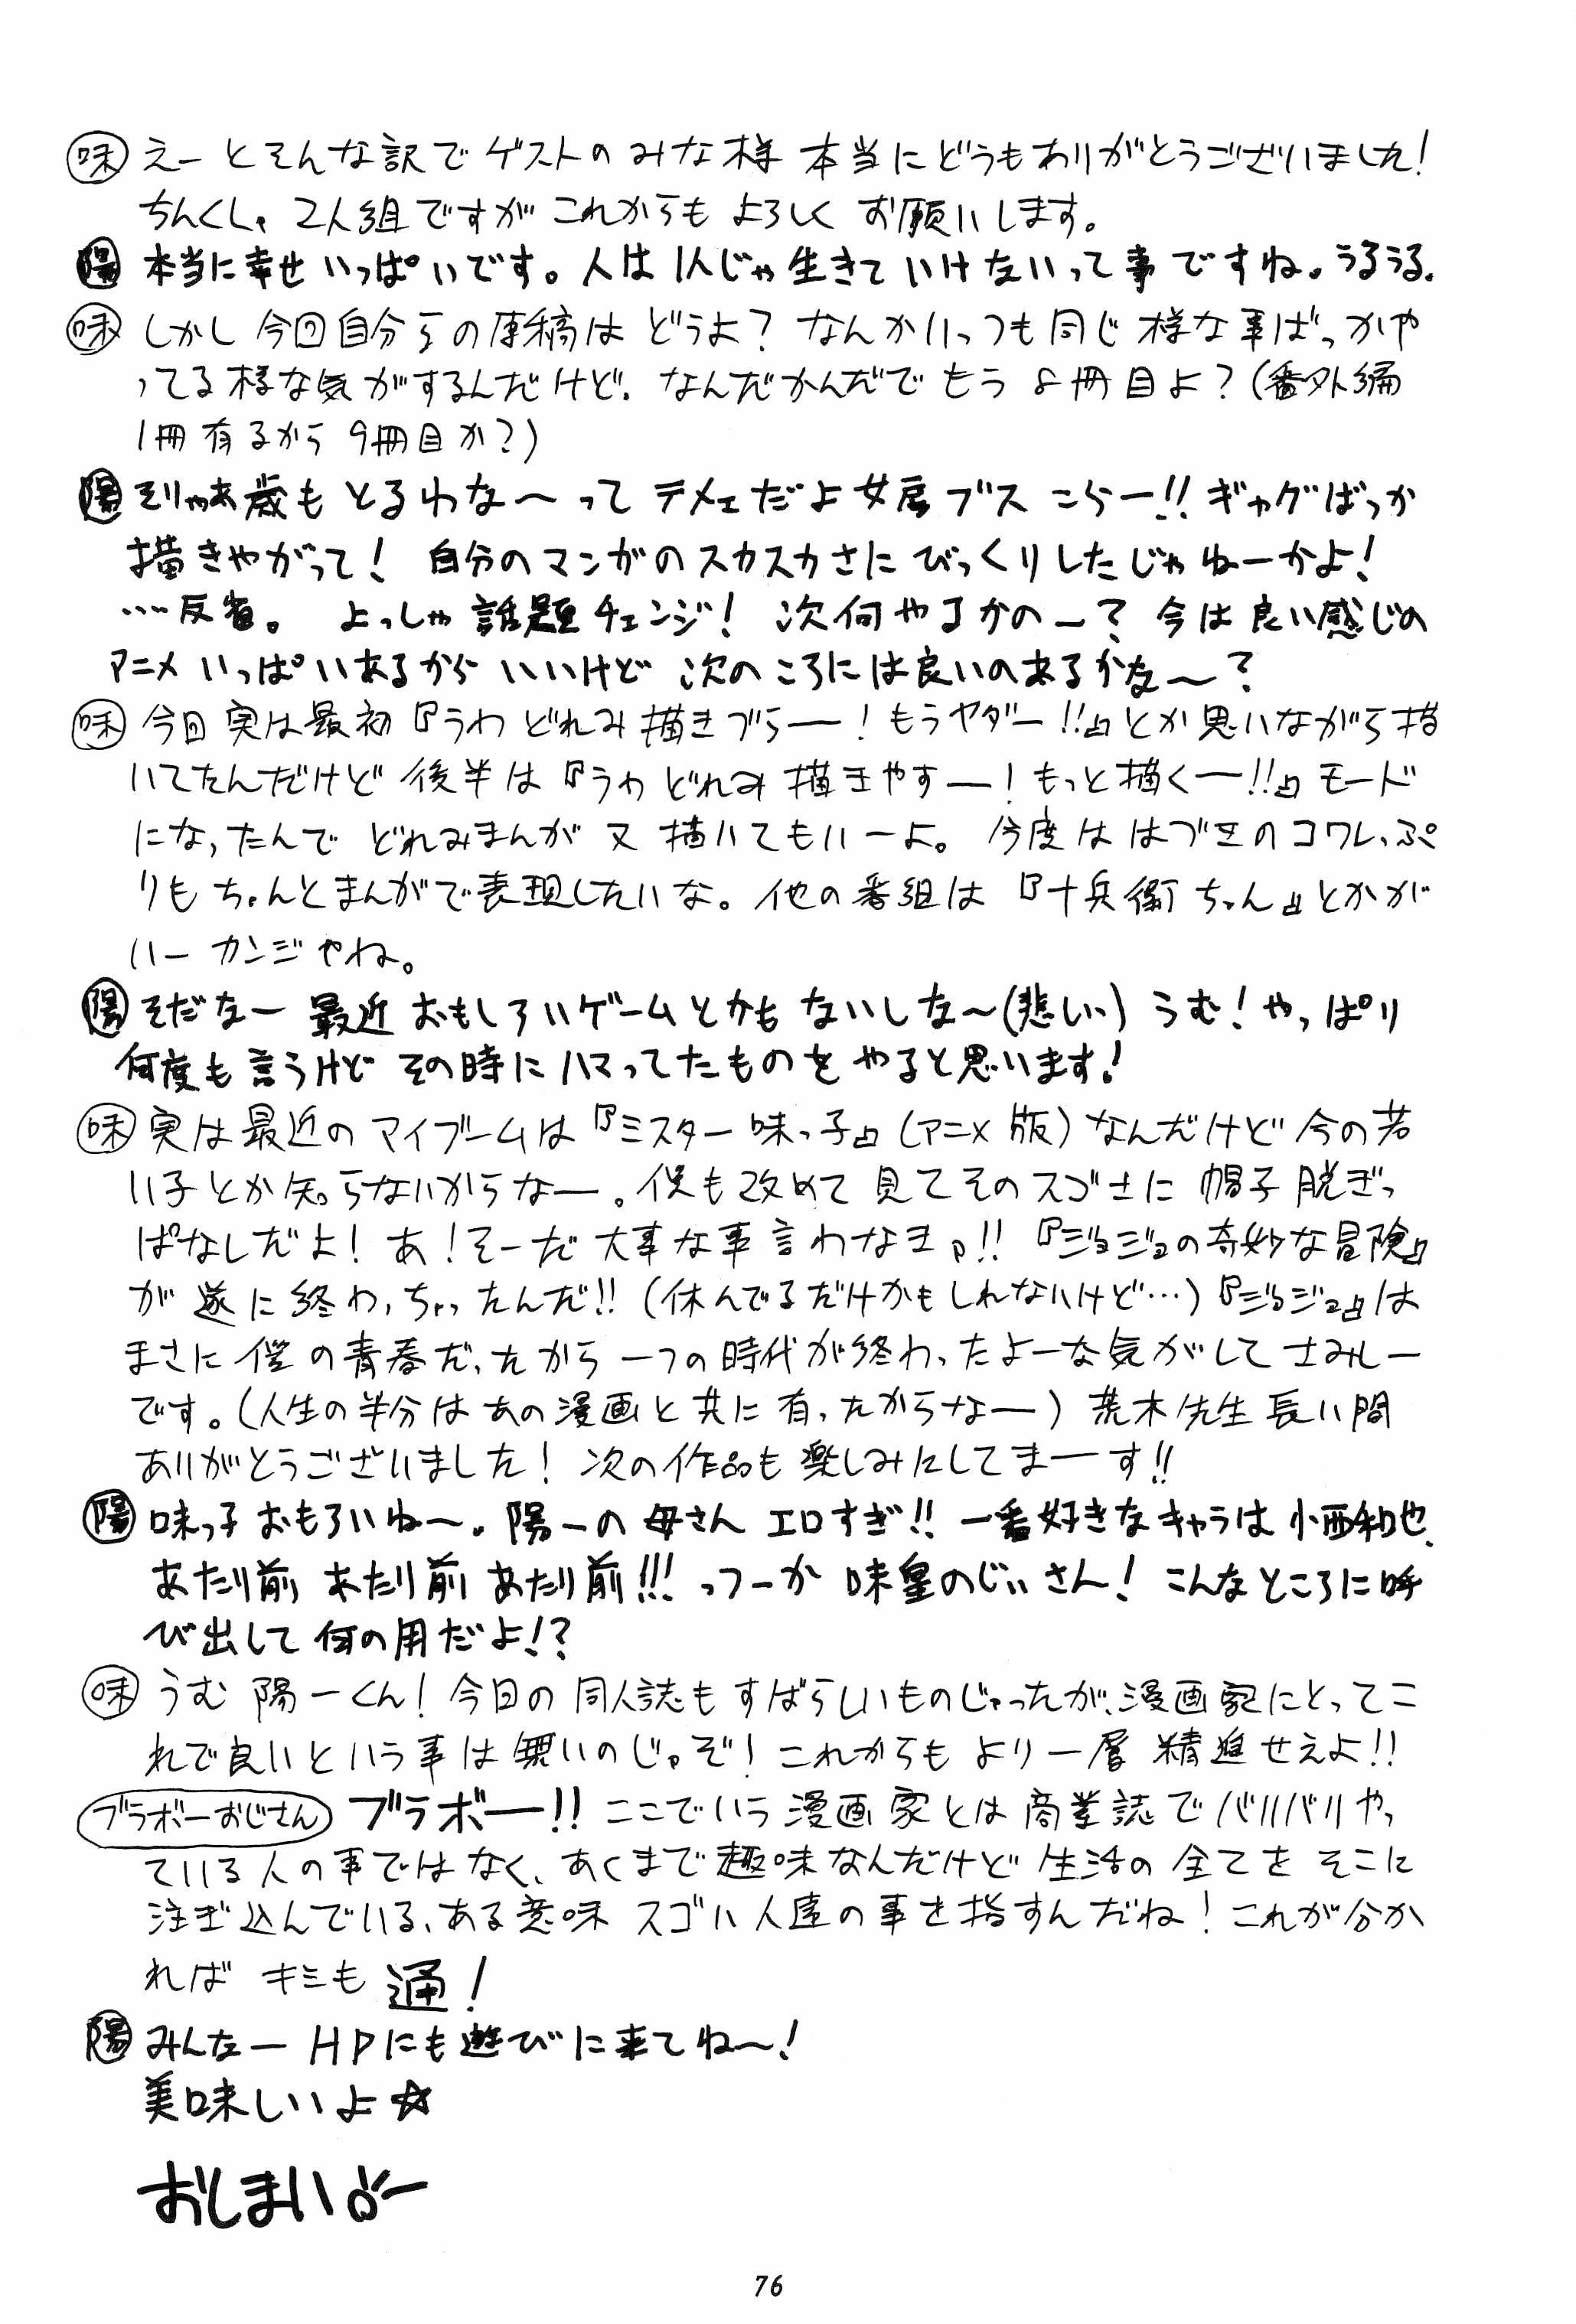 味 えーとそんな訳でゲストのみな様 本当にどうもありがとうございました!
ちんくしゃ 2人組ですが これからも よろしく お願いします。
陽 本当に幸せいっぱいです。人は1人じゃ生きていけないって事ですね。うるうる.
味 しかし今回自分らの原稿は どうよ? なんかいっつも同じ様な事ばっかや
ってる様な気がするんだけど. なんだかんだでもう8冊目よ?(番外編
1冊有るから9冊目か?)
陽 そりゃあ歳もとるわな〜ってテメェだよ女房ブスこらー!! ギャグばっか
描きやがって! 自分のマンガのスカスカさにびっくりしたじゃねーかよ!
…反省。 よっしゃ話題チェンジ! 次何やるかのー? 今は良い感じの
アニメいっぱいあるからいいけど 次のころには良いのあるかな〜?
味 今回実は最初『うわ どれみ描きづらー! もうヤダー!!』とか思いながら描
いてたんだけど後半は『うわ どれみ描きやすー! もっと描くー!!』モード
になったんで どれみまんが又描いてもいーよ。 今度ははづきのコワレっぷ
りもちゃんとまんがで表現したいな。他の番組は『十兵衛ちゃん』とかが
いーカンジやね。
陽 そだなー 最近おもしろいゲームとかもないしな〜(悲しい) うむ! やっぱり
何度も言うけど その時にハマってたものをやると思います!
味 実は最近のマイブームは『ミスター味っ子』(アニメ版)なんだけど今の若
い子とか知らないからなー。僕も改めて見てそのスゴさに帽子脱ぎっ
ぱなしだよ! あ! そーだ大事な事言わなきゃ!! 『ジョジョの奇妙な冒険』
が遂に終わっちゃったんだ!! (休んでるだけかもしれないけど…)『ジョジョ』は
まさに僕の青春だったから一つの時代が終わったよーな気がしてさみしー
です。(人生の半分はあの漫画と共に有ったからなー) 荒木先生長い間
ありがとうございました! 次の作品も楽しみにしてまーす!!
陽 味っ子おもろいね〜. 陽一の母さんエロすぎ!! 一番好きなキャラは小西和也.
あたり前あたり前あたり前!!! っつーか 味皇のじいさん! こんなところに呼
び出して何の用だよ!?
味 うむ 陽一くん! 今回の同人誌もすばらしいものじゃったが、漫画家にとってこ
れで良いという事は無いのじゃぞ! これからもより一層精進せえよ!!
ブラボーおじさん ブラボー!! ここでいう漫画家とは商業誌でバリバリやっ
ている人の事ではなく、あくまで趣味なんだけど生活の全てをそこに
注ぎ込んでいる、ある意味スゴい人達の事を指すんだね! これが分か
れば キミも通!
陽 みんなー HPにも遊びに来てね〜!
美味しいよ☆
おしまい
76